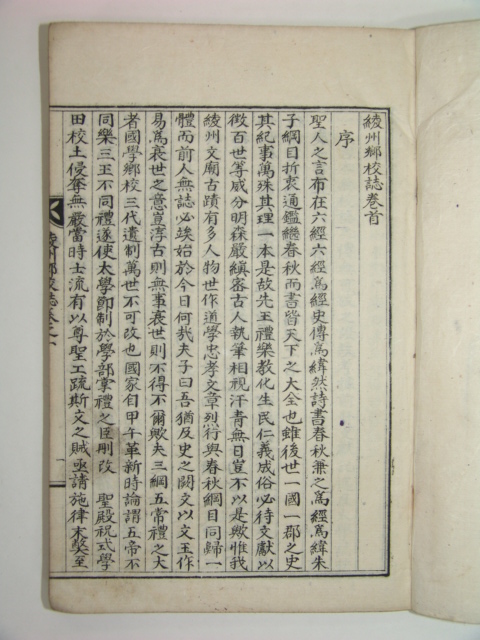 綾州鄉校誌卷首
序
聖人之言布在六經六經爲經史傳爲緯然詩書春秋兼之爲經爲緯朱
子綱目折衷通鑑繼春秋而書皆天下之大全也雖後世一國一郡之史
其紀事萬殊其理一本是故先王禮樂敎化生民仁義成俗必待文獻以
徵百世等威分明森嚴縝密古人執筆相視汗靑無日豈不以是歟惟我
綾州文廟古蹟有多人物世作道學忠孝文章烈行與春秋綱目同歸一
體而前人無誌必竢始於今日何哉夫子曰吾猶及史之闕文以文王作
易爲衰世之意豈淳古則無事衰世則不得不爾歟夫三綱五常禮之大
者國學鄉校三代遺制萬世不可改也國家自甲午革新時論謂五帝不
同樂三王不同禮遂使太學節制於學部掌禮之臣刪改 聖殿祝式學
田校土侵奪無嚴當時士流有以尊聖工疏斯文之賊亟請施律未幾至